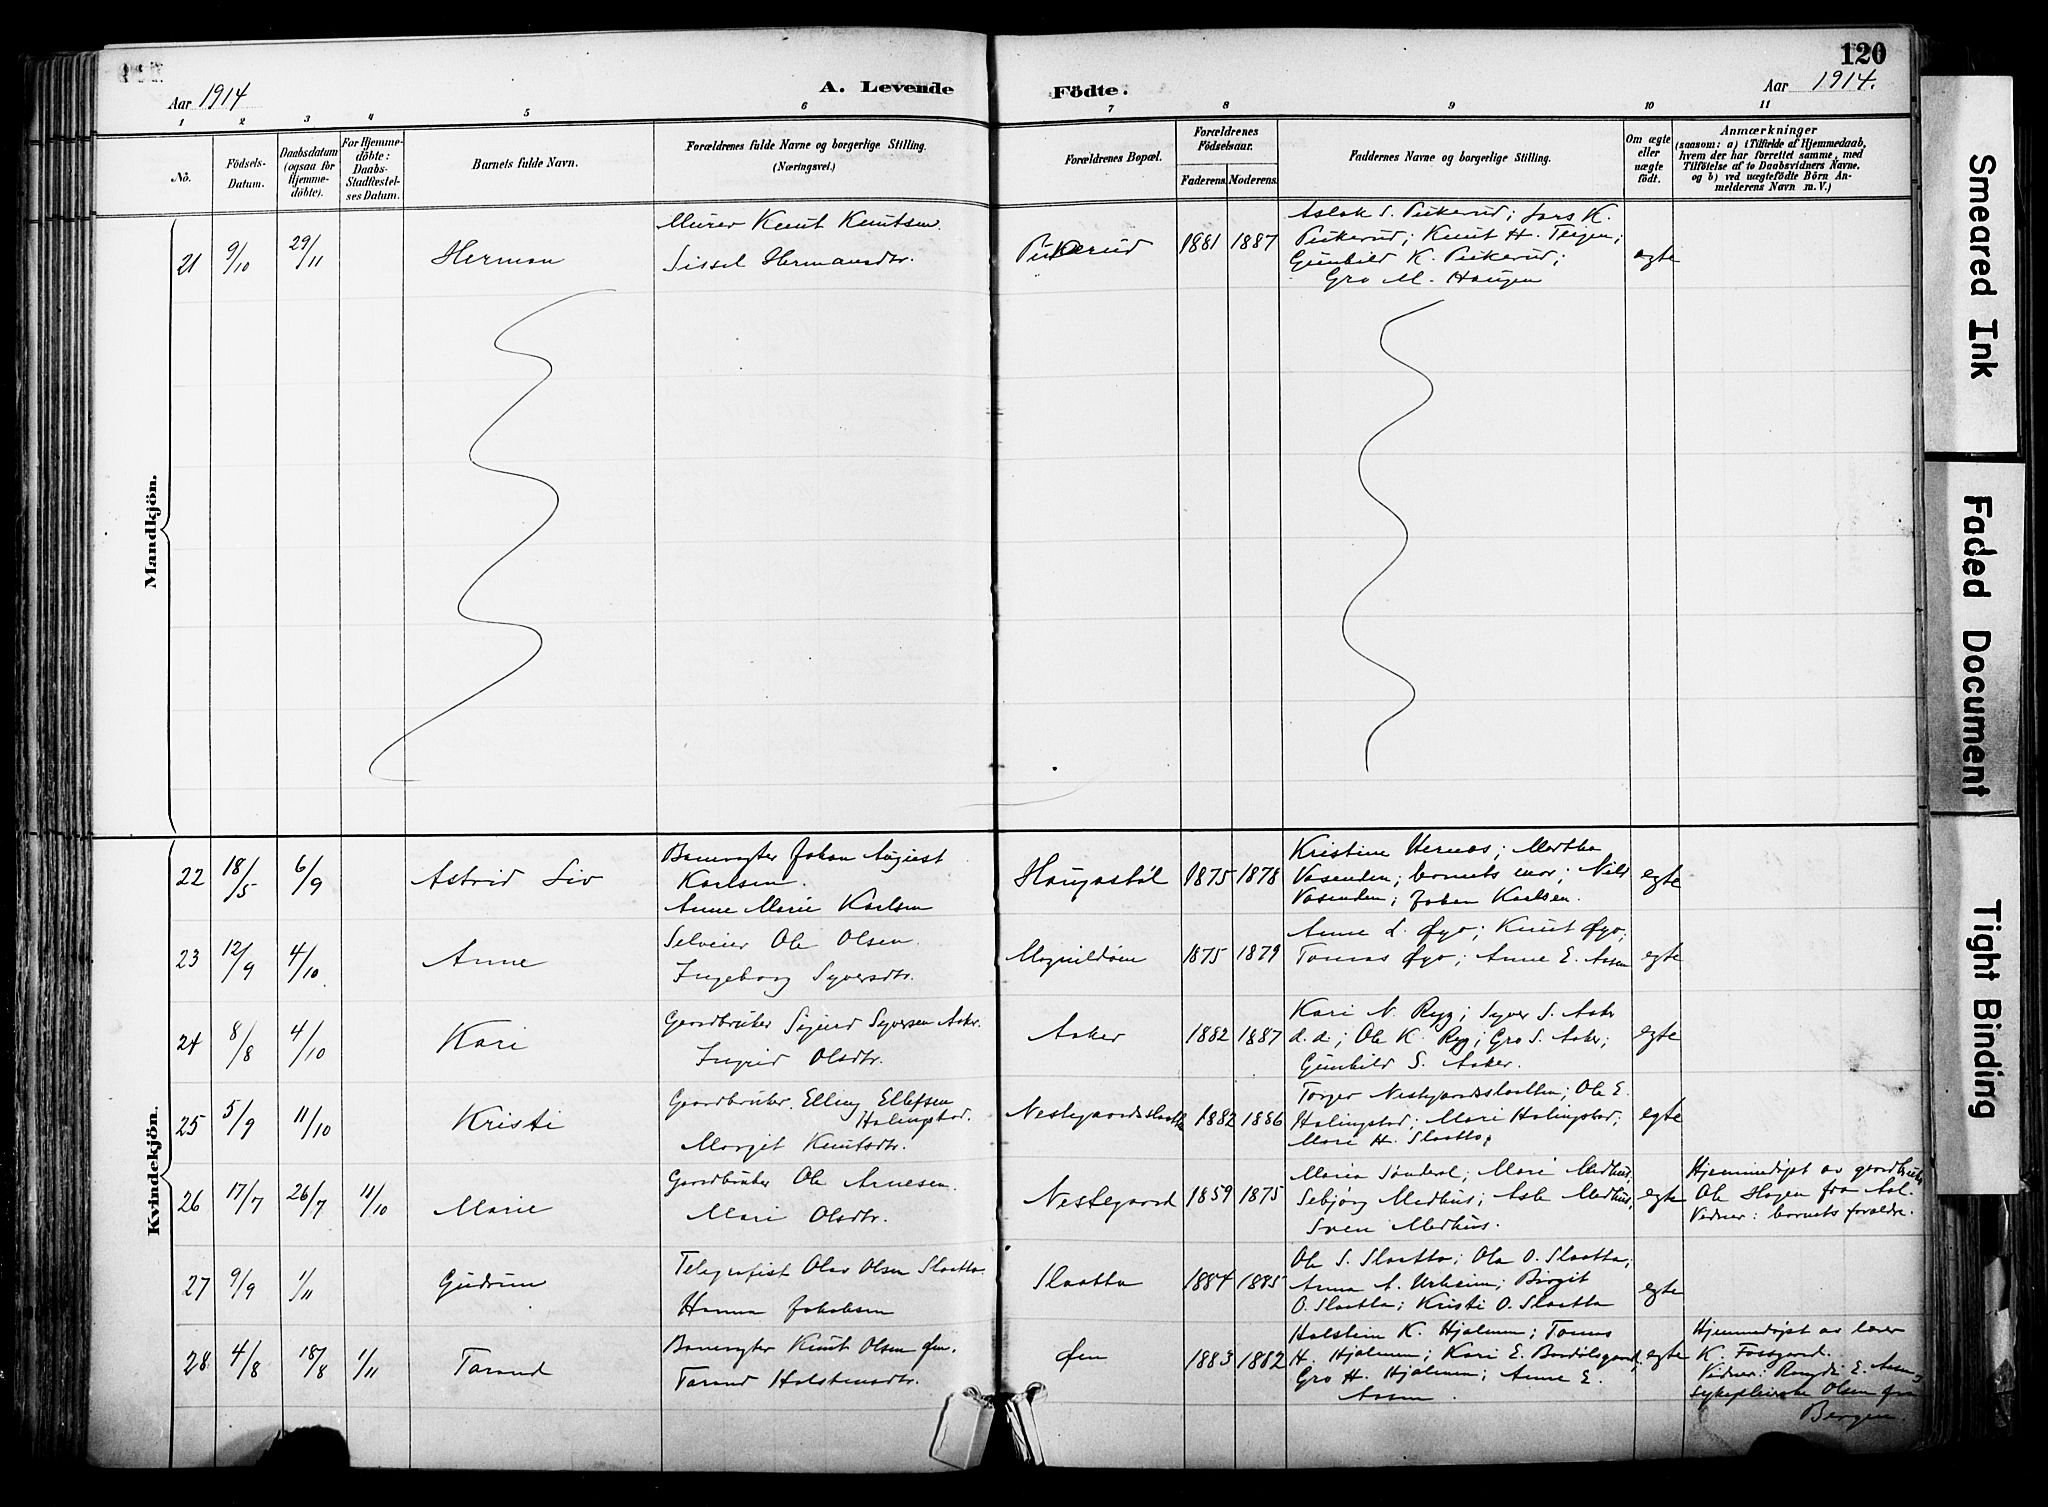 120
Aar 1914
A. Levende
Födte.
Aar 1914.
1 2 3 4 5 6 7 8 9 10 11
No.
Födsels-
Datum.
Daabsdatum
(ogsaa for
Hjemme-
döbte).
For Hjemme-
döbte:
Daabs-
Stadfæstel-
ses Datum.
Barnets fulde Navn.
Forældrenes fulde Navne og borgerlige Stilling.
(Næringsvei.)
Forældrenes Bopæl.
Forældrenes
Födselsaar.
Faderens. Moderens.
Faddernes Navne og borgerlige Stilling.
Om ægte
eller
uægte
födt.
Anmærkninger
(saasom: a) i Tilfælde af Hjemmedaab,
hvem der har forrettet samme, med
Tilföielse af to Daabsvidners Navne.
og b) ved uægtefödte Börn An-
melderens Navn m. V.)
Mandkjön.
21 9/10 29/11 Herman
Murer Knut Knutsen.
Sissel Hermansdtr.
Pukerud 1881 1887
Aslak S. Pukerud; Lars K.
Pukerud; Knut H. Teigen;
Gunhild K. Pukerud;
Gro M. Haugen
egte
Kvindekjön.
22 18/5 6/9 Astrid Liv
Banevogter Johan August
Karlsen.
Anne Marie Karlsen
Haugastöl 1875 1878
Kristine Hernes; Martha
Vasenden; barnets mor; Nils
Vasenden; Johan Karlsen.
egte
23 12/9 4/10 Anne
Selveier Ole Olsen.
Ingeborg Syversdtr.
1875 1879
Anne L. Øyo; Knut Øyo;
Tomas Øyo; Anne E. Aasen
egte
24 8/8 4/10 Kari
Gaardbruker Sigurd Syversen Aaker.
Ingrid Olsdtr.
Aaker 1882 1887
Kari N. Rygg; Syver S. Aaker
d. d.; Ole K. Rygg; Gro S. Aaker;
Gunhild S. Aaker.
egte
25 5/9 11/10 Kristi
Gaardbruker Elling Ellefsen
Halingstad.
Margit Knutsdtr.
Nestegaardsslaatta 1882 1886
Torger Nestegaardsslaatta; Ole E.
Halingstad; Mari Halingstad;
Mari H. Slaatta;
egte
26 17/7 26/7 11/10 Marie
Gaardbruker Ole Arnesen.
Mari Olsdtr.
Nestegaard 1859 1875
Maria Sønderal; Mari Medhus;
Sebjørg Medhus; Asle Medhus;
Sven Medhus.
egte
Hjemmedøpt av gaardbruker
Ole Hagen fra Aal.
Vidner: barnets forældre.
27 9/9 1/11 Gudrun
Telegrafist Olav Olsen Slaatta.
Hanna Jakobsen
Slaatta 1884 1885
Ole S. Slaatta; Ola O. Slaatta;
Anna A. Urheim; Birgit
O. Slaatta; Kristi O. Slaatta
egte
28 4/8 18/8 1/11 Tarand
Banevogter Knut Olsen Øen.
Tarand Holstensdtr.
Øen 1883 1882
Halstein K. Hjalmen; Tomas
H. Hjalmen; Kari E. Bardölsgaard;
Gro H. Hjalmen; Anne E.
Aasen.
egte
Hjemmedøpt av lærer
K. Fossgard.
Vidner: Randi E. Aasen,
sykepleierske Olsen fra
Bergen.
Smeared Ink
Faded Document
Tight Binding